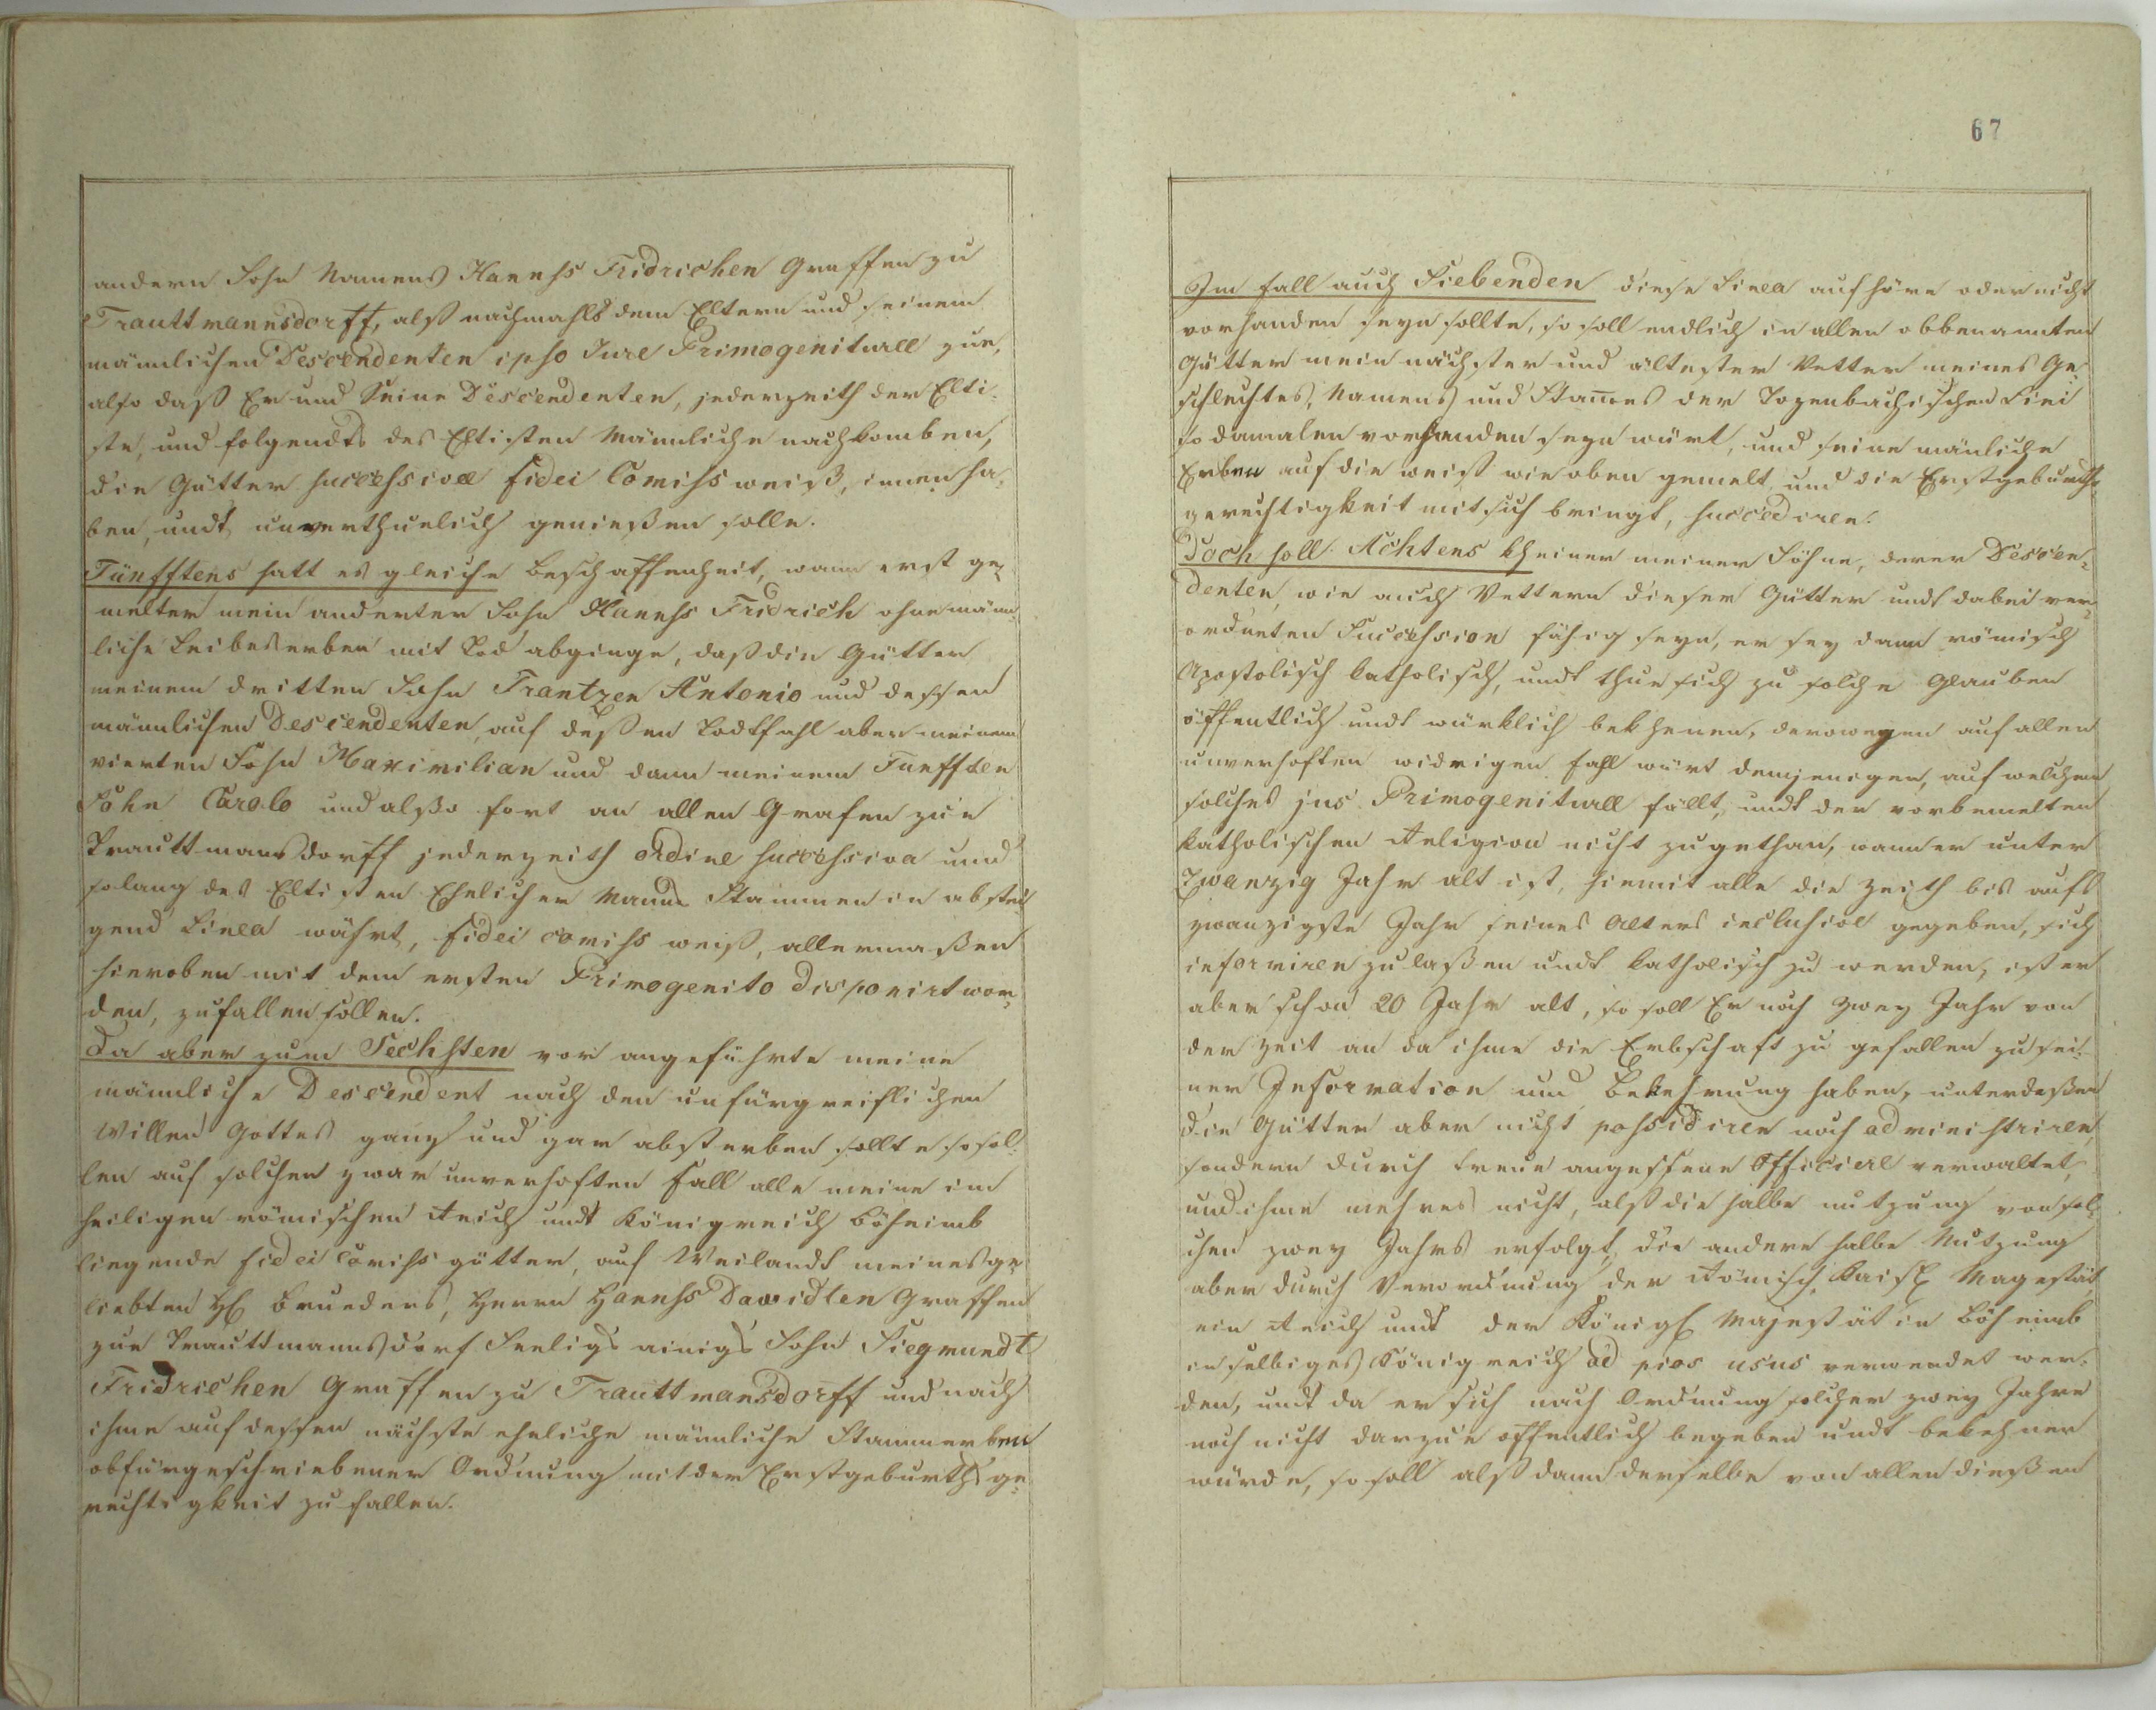 andern Sohn Namens Hannſs Fridrichen Graffen zu
Trauttmannsdorff, alß nachmahls dem Eltern und seinem
männlichen Descendenten ipso Jure Primogeniturae zue,
also daß Er und Seine Descendenten, jederzeith der Elti-
ste, und folgendts des Eltisten Männliche nachkomben,
die Gütter successive fidei Comiss weiß, innen ha-
ben, undt unverthuelich genießen solle.
Fünfftens hatt es gleiche beschaffenheit, wann erst ge-
melter mein anderter Sohn Hannſs Fridrich ohne männ-
liche Leibeserben mit Tod abginge, daß die Gütter
meinem dritten Sohn Frantzen Antonio und dessen
männlichen Descendenten, auf deßen Todtfahl aber meinem
vierten Sohn Maximilian und dann meinem Fünfften
Sohn Carolo und alßo fort an allen Grafen zue
Trauttmansdorff jederzeith ordine successiva und
solang des Eltisten Ehelicher Manns Stammen in abstei-
gend Linea währt, fidei comiss weiß, allermaßen
hieroben mit dem ersten Primogenito disponirt wor-
den, zufallen sollen.
Da aber zum Sechsten vor angeführte meine
männliche Descendent nach den unfürgreiflichen
Willen Gottes ganz und gar absterben sollte so sol-
len auf solchen zwar unverhoften Fall alle meine im
heiligen römischen Reich undt Königreich Böheimb
liegende fidei Comiss gütter, auf Weilandt meines ge-
liebten H Brueders, Herrn Hannſs Davidten Graffen
zue Trauttmannsdorf Seeligs ainigs Sohn Siegmundt
Fridrichen Graffen zu Trauttmansdorff und nach
ihme auf dessen nächste eheliche männliche Stammerben
obfürgeschriebener Ordnung mit der Erstgeburthsge-
rechtigkeit zu fallen.
67
Im fall auch Siebenden diese Linea aufhöre oder nicht
vorhanden seyn sollte, so soll endlich in allen obbenannten
Gütter mein nächster und ältester Vetter meines Ge-
schlechtes, Namens und Stam̄es der Tozenbachischen Linie
so damalen vorhanden seyn würt, und seine mänliche
Erben auf die weiß wie oben gemelt, und die Erstgeburths-
gerechtigkeit mit sich bringt, succediren.
Doch soll Achtens kheiner meiner Söhne, derer Descen-
denten, wie auch Vettern dieser Gütter undt dabei ver-
ordneten Succession fähig seyn, er sey dann römisch
Apostolisch katholisch, undt thue sich zu solche Glauben
öffentlich undt würklich bekhenen, derowegen auf allen
unverhoften widrigen fahl würt demjenigen, auf welchen
solches jus Primogeniturae fällt, undt der vorbemelten
katholischen Religion nicht zugethan, wann er unter
Zwanzig Jahr alt ist, hiemit alle die Zeith bis aufs
zwanzigste Jahr seines Alters inclusive gegeben, sich
informiren zu laßen undt katholisch zu werden, ist er
aber schon 20 Jahr alt, so soll Er noch zwey Jahr von
der Zeit an da ihme die Erbschaft zu gefallen zu sei-
ner Information und Bekehrung haben, unterdeßen
die Gütter aber nicht possidiren noch administriren,
sondern durch treue angessene Officiere verwaltet,
und ihme mehres nicht, alß die halbe nutzung von sol-
chen zwey Jahrs erfolgt, die andere halbe Nutzung
aber durch Verordnung der Römisch Kaisl Magestät
im Reich undt der Königl Majestät in Böheimb
in selbiges Königreich ad pios usus verwendet wer-
den, undt da er sich nach Ordnung solcher zwey Jahre
noch nicht darzue öffentlich begeben undt bekehner
würde, so soll alß dann derselbe von allen dießen